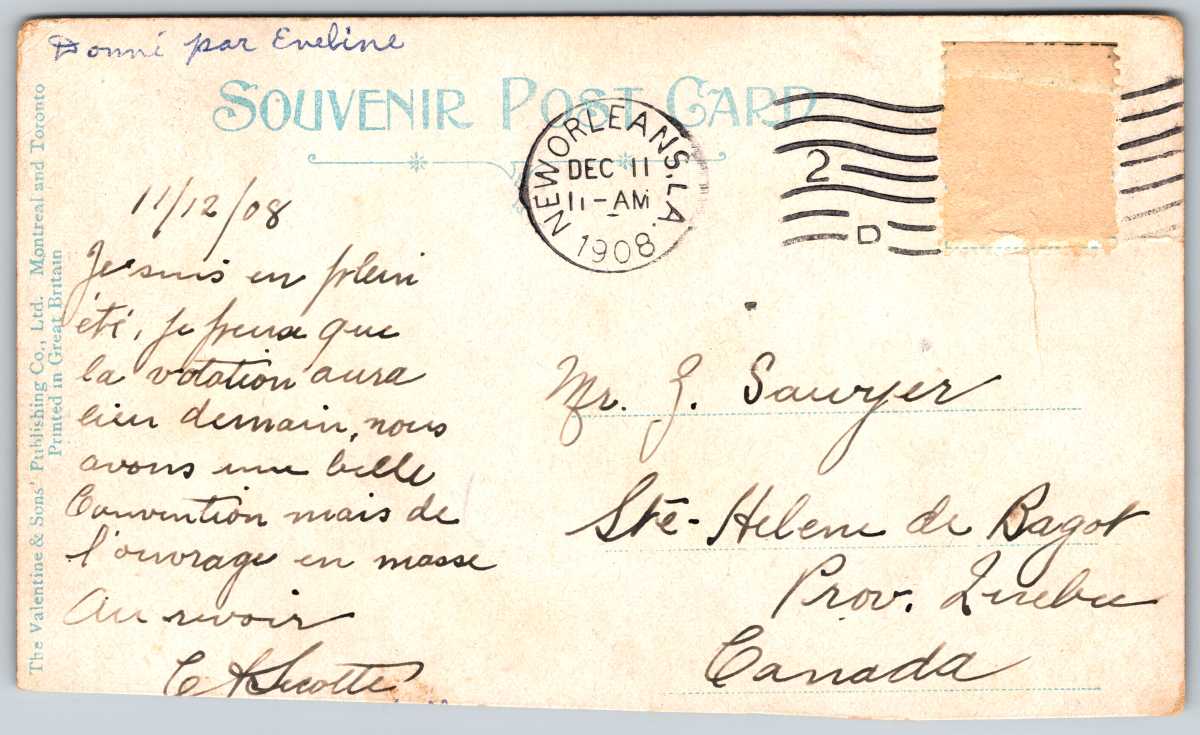 Donné par Eveline
SOUVENIR POST CARD
NEW ORLEANS, LA.
DEC 11
11-AM
1908
2
D
11/12/08
Je suis en plein
été, je preux que
la votation aura
lieu demain, nous
avons une belle
Convention mais de
l'ouvrage en masse
Au revoir
Mr. J. Sawyer
Ste-Helene de Bagot
Prov. Quebec
Canada
The Valentine & Sons' Publishing Co., Ltd. Montreal and Toronto
Printed in Great Britain